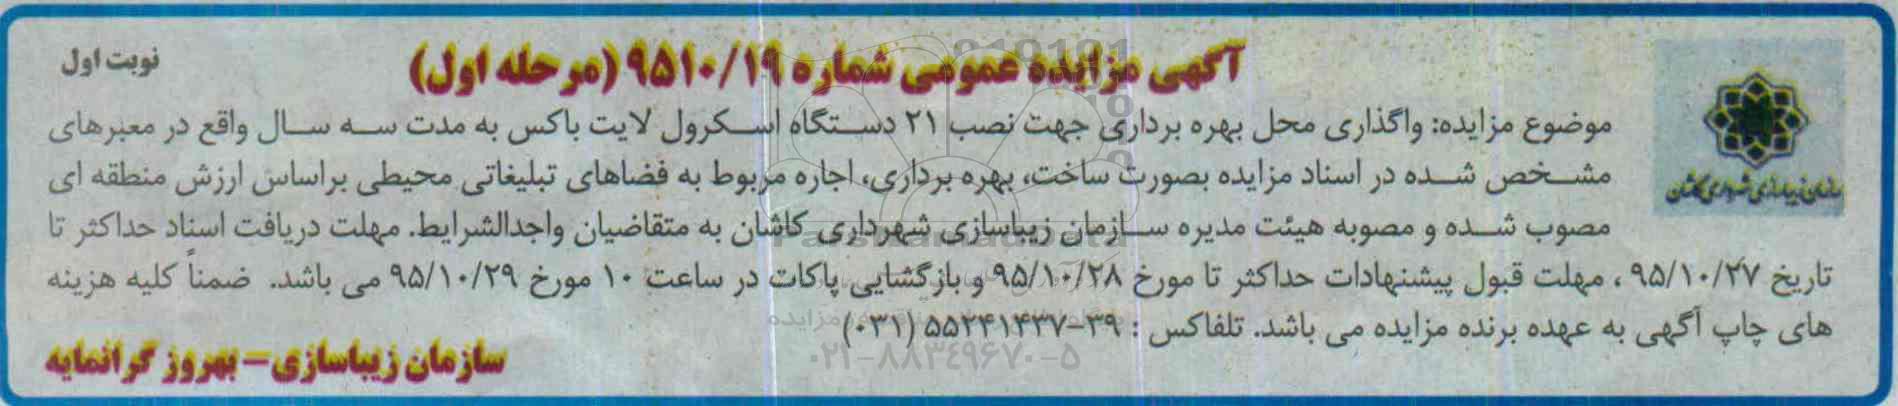 آگهی مزایده عمومی شماره ۹۵۱۰/۱۹ (مرحله اول)
نوبت اول
سازمان زیباسازی شهرداری کاشان
موضوع مزایده: واگذاری محل بهره برداری جهت نصب ۲۱ دستگاه اسکرول لایت باکس به مدت سه سال واقع در معبرهای
مشخص شده در اسناد مزایده بصورت ساخت، بهره برداری، اجاره مربوط به فضاهای تبلیغاتی محیطی براساس ارزش منطقه ای
مصوب شده و مصوبه هیئت مدیره سازمان زیباسازی شهرداری کاشان به متقاضیان واجدالشرایط. مهلت دریافت اسناد حداکثر تا
تاریخ ۹۵/۱۰/۲۷ ، مهلت قبول پیشنهادات حداکثر تا مورخ ۹۵/۱۰/۲۸ و بازگشایی پاکات در ساعت ۱۰ مورخ ۹۵/۱۰/۲۹ می باشد. ضمناً کلیه هزینه
های چاپ آگهی به عهده برنده مزایده می باشد. تلفاکس : ۳۹-۵۵۲۴۱۴۳۷ (۰۳۱)
۰۲۱-۸۸۳۴۹۶۷۰-۵
سازمان زیباسازی – بهروز گرانمایه